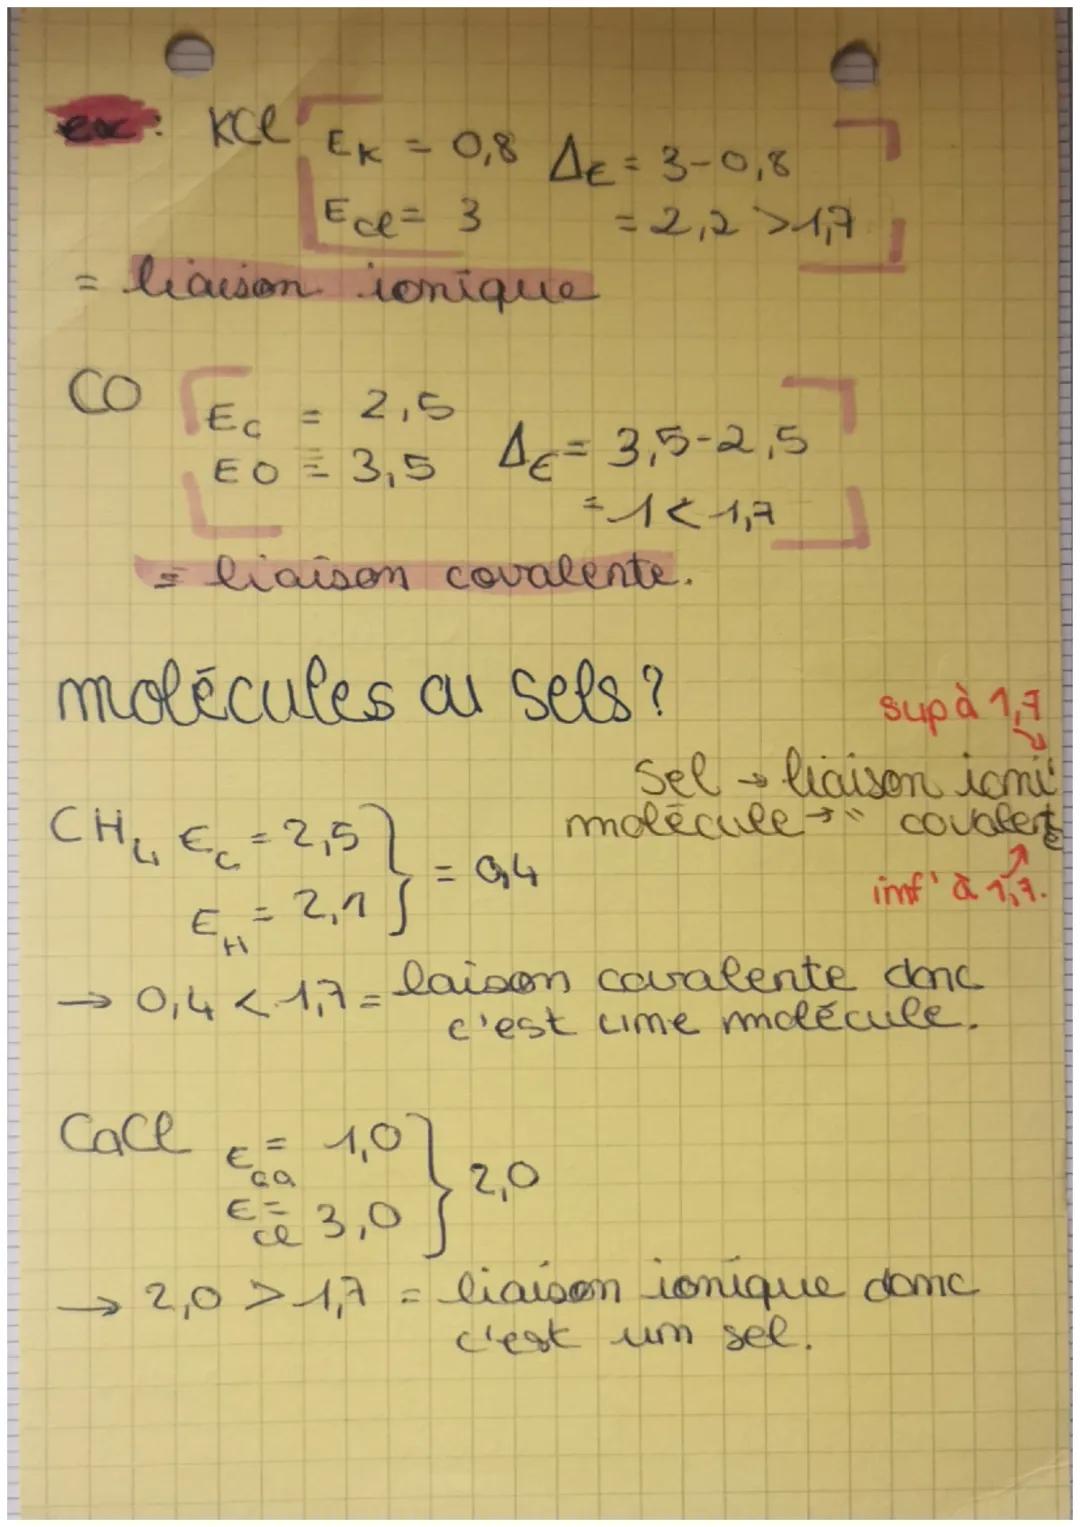 ex: KCl EK = 0,8 Δ€ = 3-0,8
ECl = 3 = 2,2 >1,7
= liaison ionique
CO EC = 2,5
EO = 3,5 Δ€ = 3,5-2,5
= 1 < 1,7
= liaison covalente.
molécules ou sels?
sup à 1,7
Sel → liaison ioni'
molécule → " covalent
inf' à 1,7.
CH4 €C = 2,5
€H = 2,1 } = 0,4
→ 0,4 < 1,7 = laison covalente donc
c'est une molécule.
CaCl €Ca = 1,0
€Cl = 3,0 } 2,0
→ 2,0 > 1,7 = liaison ionique donc
c'est un sel.